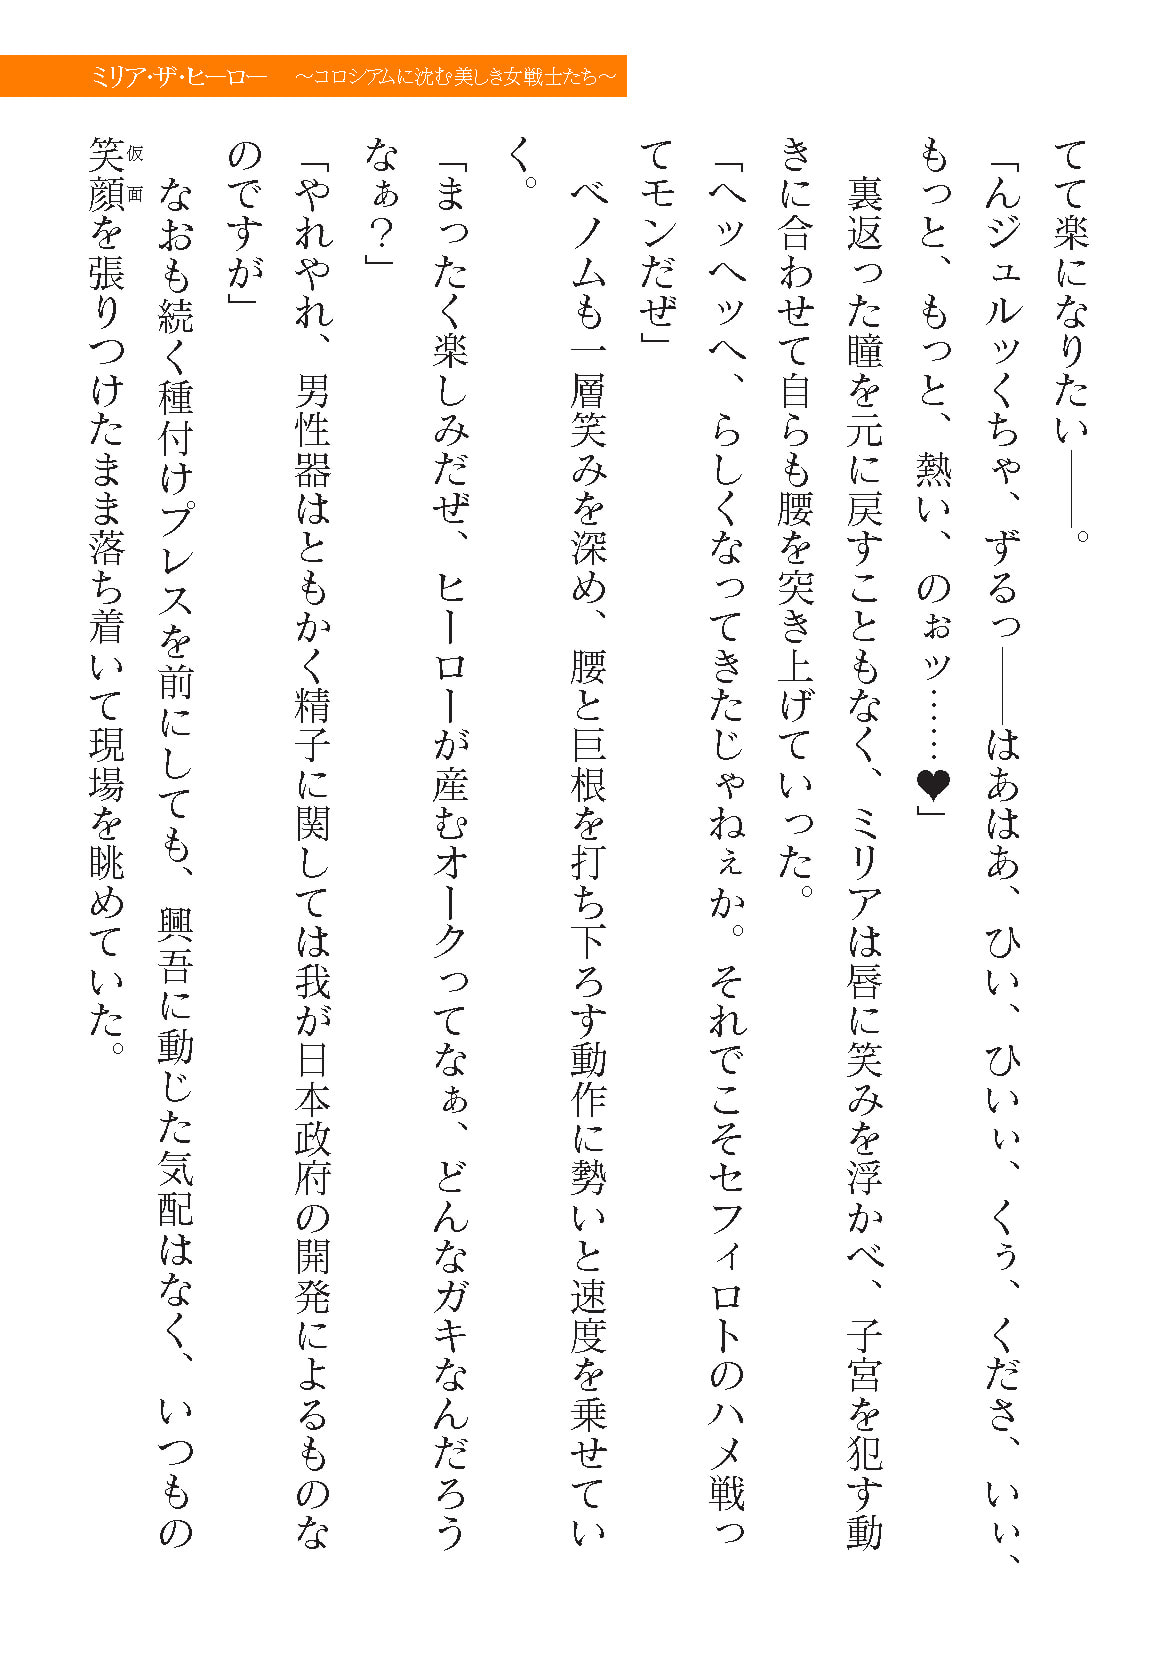 ミリア・ザ・ヒーロー　～コロシアムに沈む美しき女戦士たち～
てて楽になりたい――。
「んジュルッくちゃ、ずるっ――はあはあ、ひい、ひいぃ、くぅ、くださ、いぃ、
もっと、もっと、熱い、のぉッ……♥」
　裏返った瞳を元に戻すこともなく、ミリアは唇に笑みを浮かべ、子宮を犯す動
きに合わせて自らも腰を突き上げていった。
「ヘッヘッヘ、らしくなってきたじゃねぇか。それでこそセフィロトのハメ戦っ
てモンだぜ」
　ベノムも一層笑みを深め、腰と巨根を打ち下ろす動作に勢いと速度を乗せてい
く。
「まったく楽しみだぜ、ヒーローが産むオークってなぁ、どんなガキなんだろう
なぁ？」
「やれやれ、男性器はともかく精子に関しては我が日本政府の開発によるものな
のですが」
　なおも続く種付けプレスを前にしても、興吾に動じた気配はなく、いつもの
仮面
笑顔を張りつけたまま落ち着いて現場を眺めていた。